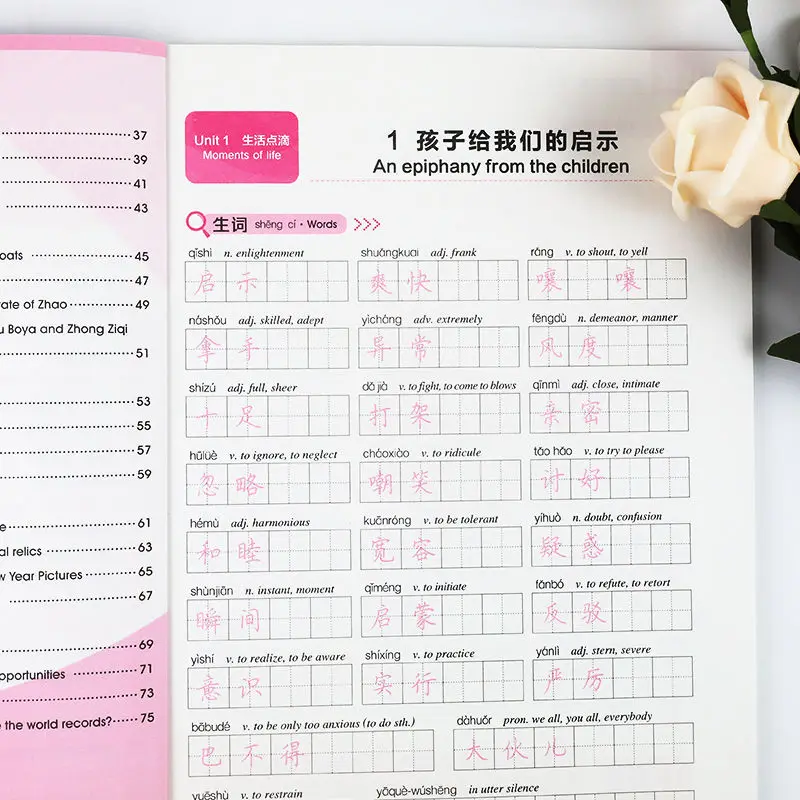 37
39
41
43
oats 45
47
ate of Zhao 49
u Boya and Zhong Ziqi
51
53
55
57
59
e 61
al relics 63
w Year Pictures 65
67
69
pportunities 71
73
e the world records? 75
Unit 1 生活点滴
Moments of life
1 孩子给我们的启示
An epiphany from the children
生词 shēng cí · Words
qǐshì n. enlightenment shuǎngkuai adj. frank rǎng v. to shout, to yell
启示 爽快 嚷 嚷
náshǒu adj. skilled, adept yìcháng adv. extremely fēngdù n. demeanor, manner
拿手 异常 风度
shízú adj. full, sheer dǎ jià v. to fight, to come to blows qīnmì adj. close, intimate
十足 打架 亲密
hūlüè v. to ignore, to neglect cháoxiào v. to ridicule tǎo hǎo v. to try to please
忽略 嘲笑 讨好
hémù adj. harmonious kuānróng v. to be tolerant yíhuò n. doubt, confusion
和睦 宽容 疑惑
shùnjiān n. instant, moment qǐméng v. to initiate fǎnbó v. to refute, to retort
瞬间 启蒙 反驳
yìshí v. to realize, to be aware shíxíng v. to practice yánlì adj. stern, severe
意识 实行 严厉
bābudé v. to be only too anxious (to do sth.) dàhuǒr pron. we all, you all, everybody
巴不得 大伙儿
yuēshù v. to restrain yāquè-wúshēng in utter silence